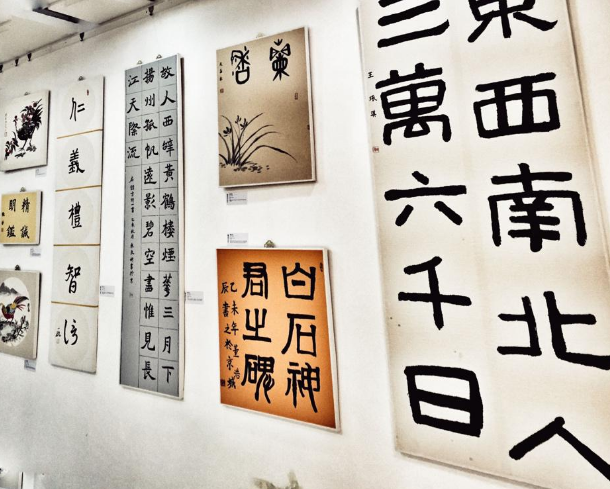 精誠
明鑑
仁義禮智信
故人西辭黃鶴樓煙華三月下
揚州孤帆遠影碧空盡惟見長
江天際流
白石神
君之碑
東西南北人
三萬六千日